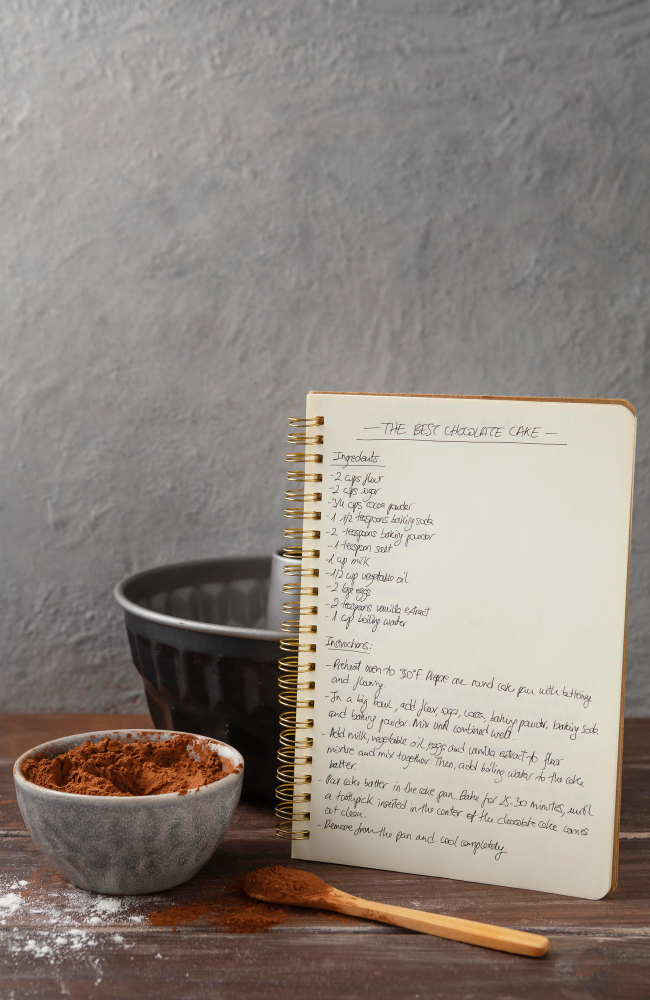 — THE BEST CHOCOLATE CAKE —
Ingredients:
- 2 cups flour
- 2 cups sugar
- 3/4 cups cocoa powder
- 1 1/2 teaspoons baking soda
- 2 teaspoons baking powder
- 1 teaspoon salt
- 1 cup milk
- 1/2 cup vegetable oil
- 2 large eggs
- 2 teaspoons vanilla extract
- 1 cup boiling water
Instructions:
- Preheat oven to 350°F. Prepare one round cake pan with buttering
and flouring
- In a big bowl, add flour, sugar, cocoa, baking powder, baking soda
and baking powder. Mix until combined well.
- Add milk, vegetable oil, eggs and vanilla extract to flour
mixture and mix together. Then, add boiling water to the cake
batter
- Pour cake batter in the cake pan. Bake for 25-30 minutes, until
a toothpick inserted in the center of the chocolate cake comes
out clean.
- Remove from the pan and cool completely